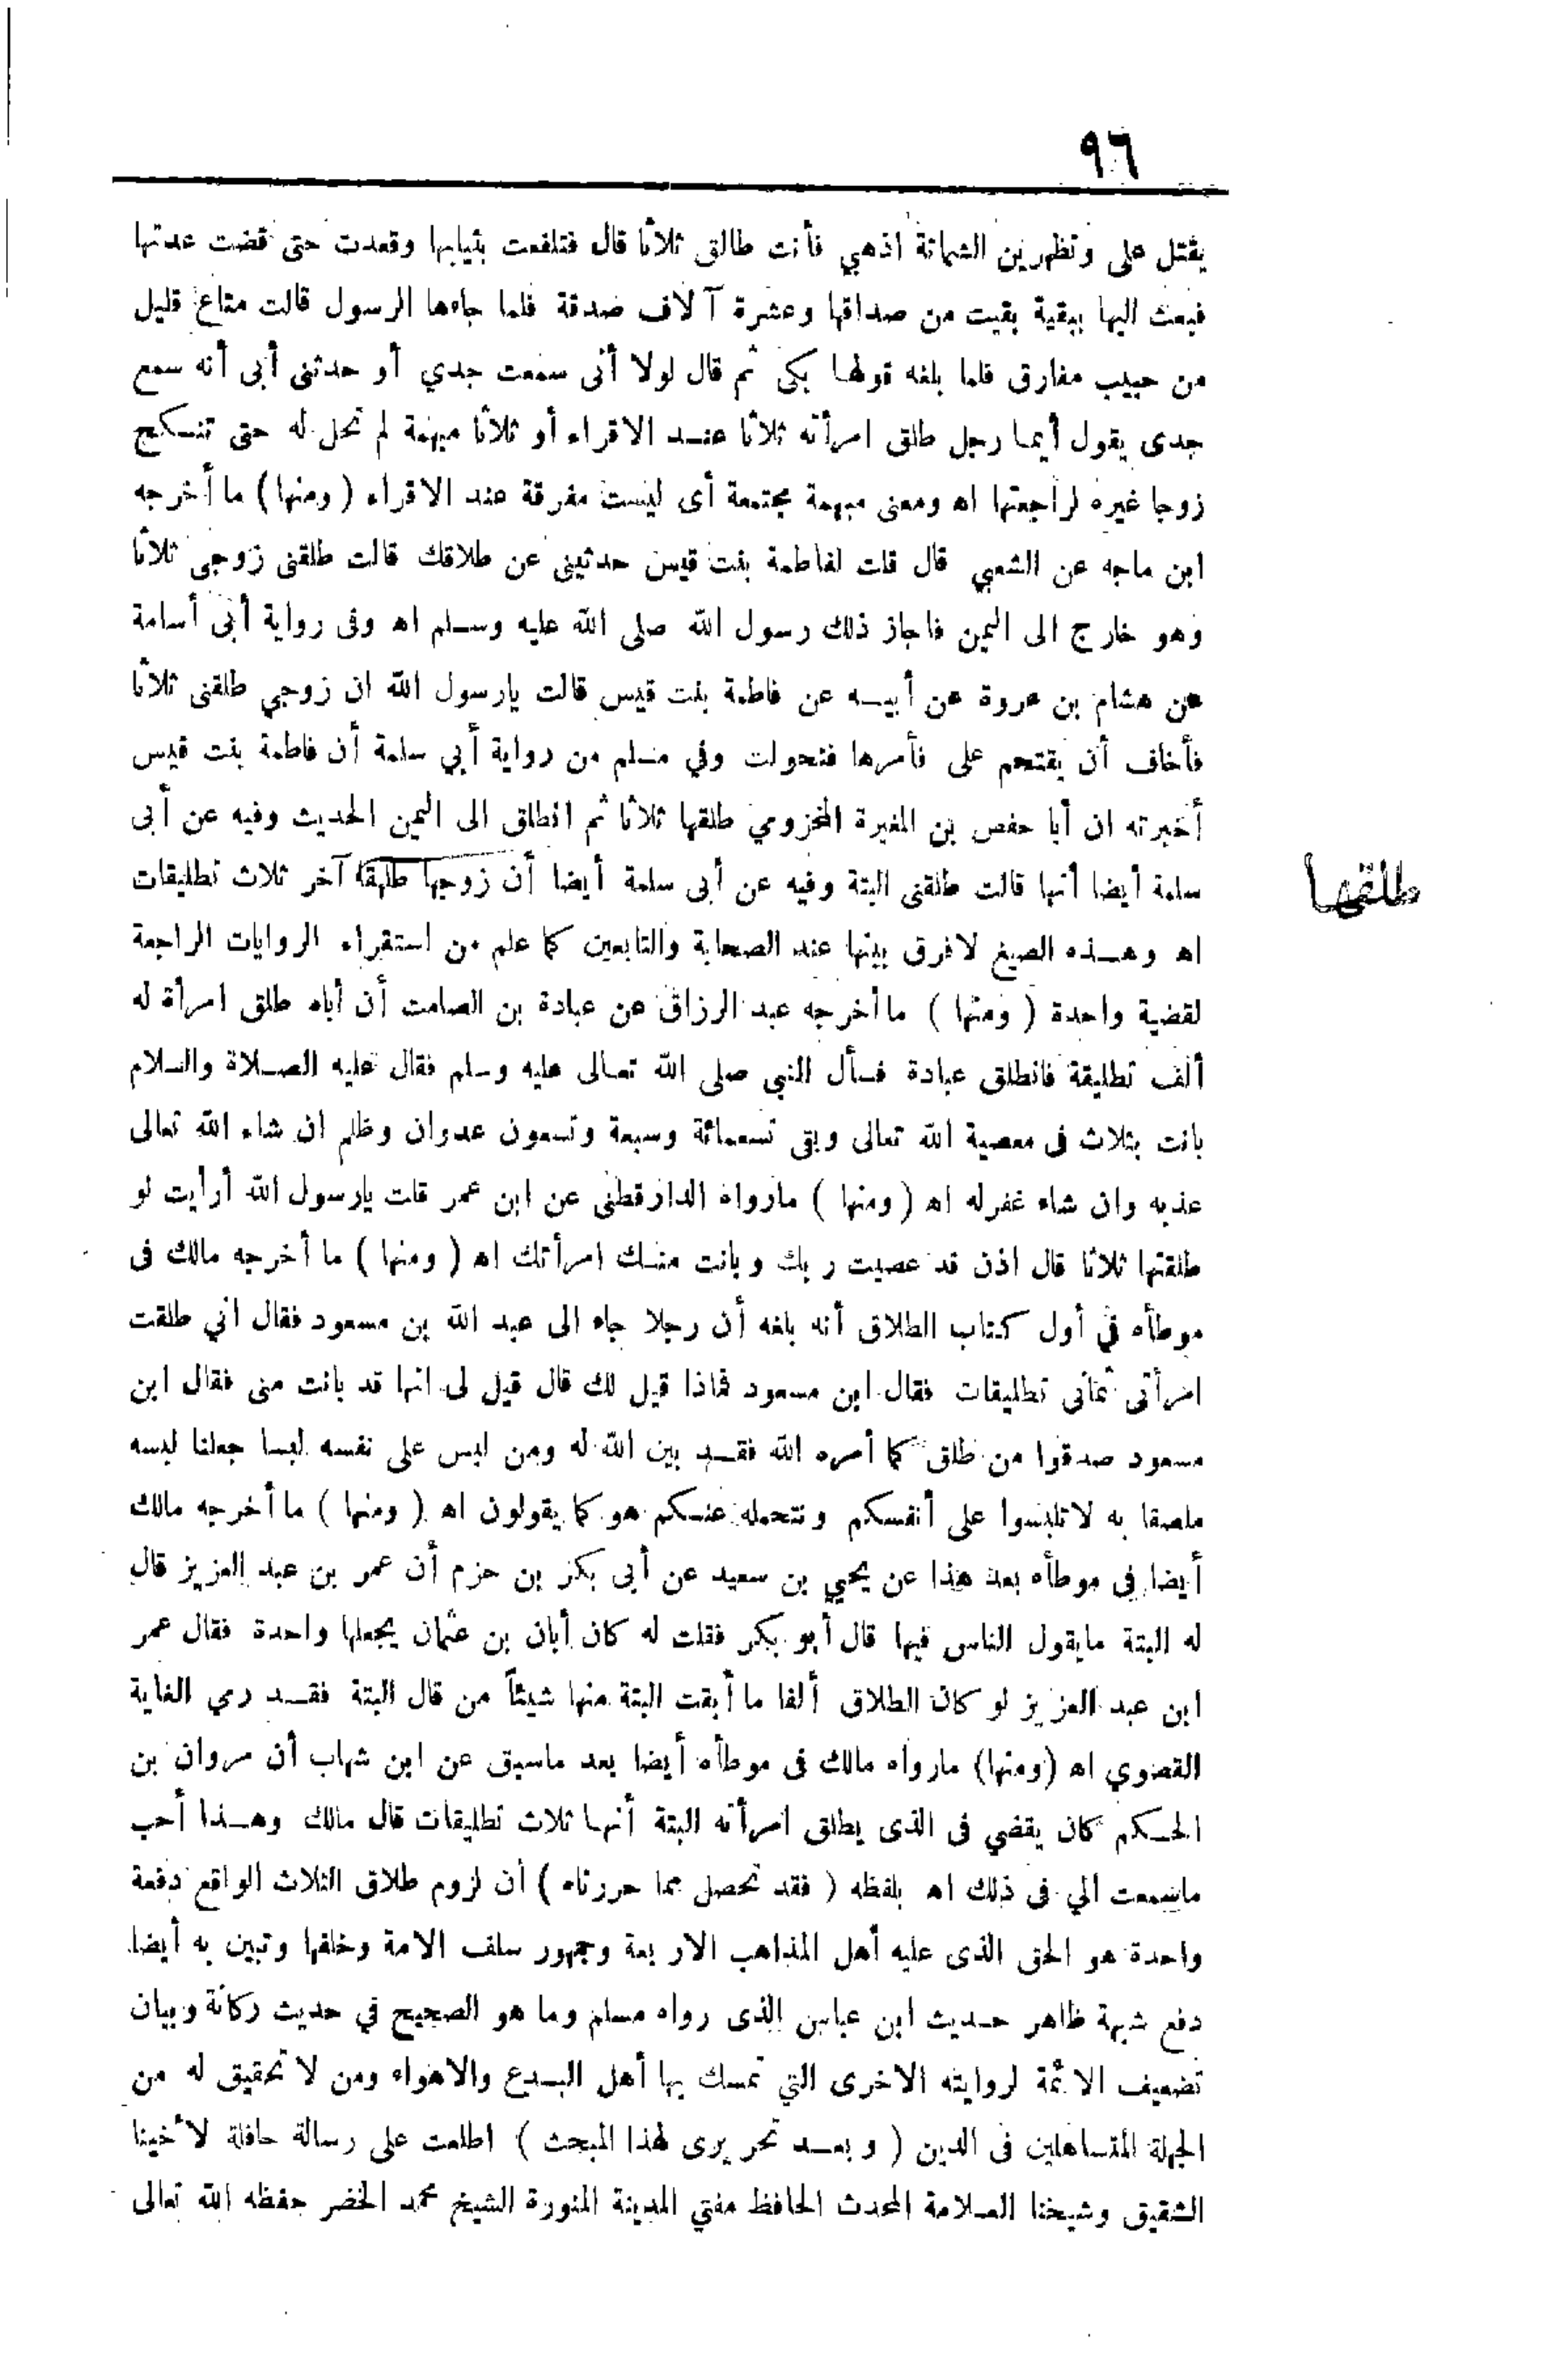 ٩٦
يقتل على وتظهرين الشماتة اذهبي فأنت طالق ثلاثا قال فتلفعت بثيابها وقعدت حتى قضت عدتها
فبعث اليها ببقية بقيت من صداقها وعشرة آلاف صدقة فلما جاءها الرسول قالت متاع قليل
من حبيب مفارق فلما بلغه قولها بكى ثم قال لولا أنى سمعت جدي أو حدثنى أبى أنه سمع
جدى يقول أيما رجل طلق امرأته ثلاثا عند الاقراء أو ثلاثا مبهمة لم تحل له حتى تنكح
زوجا غيره لراجعتها اه ومعنى مبهمة مجتمعة أى ليست مفرقة عند الاقراء (ومنها) ما أخرجه
ابن ماجه عن الشعبي قال قلت لفاطمة بنت قيس حدثينى عن طلاقك قالت طلقنى زوجى ثلاثا
وهو خارج الى اليمن فاجاز ذلك رسول الله صلى الله عليه وسلم اه وفى رواية أبى أسامة
عن هشام بن عروة عن أبيه عن فاطمة بنت قيس قالت يارسول الله ان زوجي طلقنى ثلاثا
فأخاف أن يقتحم على فأمرها فتحولت وفي مسلم من رواية أبي سلمة أن فاطمة بنت قيس
أخبرته ان أبا حفص بن المغيرة المخزومي طلقها ثلاثا ثم انطلق الى اليمن الحديث وفيه عن أبى
سلمة أيضا أنها قالت طلقنى البتة وفيه عن أبى سلمة أيضا أن زوجها طلبقة آخر ثلاث تطليقات
طلقها
اه وهذه الصيغ لافرق بينها عند الصحابة والتابعين كما علم من استقراء الروايات الراجعة
لقضية واحدة (ومنها) ما أخرجه عبد الرزاق عن عبادة بن الصامت أن أباه طلق امرأة له
ألف تطليقة فانطلق عبادة فسأل النبي صلى الله تعالى عليه وسلم فقال عليه الصلاة والسلام
بانت بثلاث فى معصية الله تعالى وبقى تسعمائة وسبعة وتسعون عدوان وظلم ان شاء الله تعالى
عذبه وان شاء غفرله اه (ومنها) مارواه الدارقطنى عن ابن عمر قلت يارسول الله أرأيت لو
طلقتها ثلاثا قال اذن قد عصيت ربك وبانت منك امرأتك اه (ومنها) ما أخرجه مالك فى
موطأه في أول كتاب الطلاق أنه بلغه أن رجلا جاء الى عبد الله بن مسعود فقال اني طلقت
امرأتى ثمانى تطليقات فقال ابن مسعود فماذا قيل لك قال قيل لى انها قد بانت منى فقال ابن
مسعود صدقوا من طلق كما أمره الله فقد بين الله له ومن لبس على نفسه لبسا جعلنا لبسه
ملصقا به لاتلبسوا على أنفسكم ونتحمله عنكم هو كما يقولون اه (ومنها) ما أخرجه مالك
أيضا فى موطأه بعد هذا عن يحيي بن سعيد عن أبى بكر بن حزم أن عمر بن عبد العزيز قال
له البتة مايقول الناس فيها قال أبو بكر فقلت له كان أبان بن عثمان يجعلها واحدة فقال عمر
ابن عبد العزيز لو كان الطلاق ألفا ما أبقت البتة منها شيئاً من قال البتة فقد رمى الغاية
القصوي اه (ومنها) مارواه مالك فى موطأه أيضا بعد ماسبق عن ابن شهاب أن مروان بن
الحكم كان يقضي فى الذى يطلق امرأته البتة أنها ثلاث تطليقات قال مالك وهذا أحب
ماسمعت الي فى ذلك اه بلفظه (فقد تحصل مما حررناه) أن لزوم طلاق الثلاث الواقع دفعة
واحدة هو الحق الذى عليه أهل المذاهب الاربعة وجمهور سلف الامة وخلفها وتبين به أيضا
دفع شبهة ظاهر حديث ابن عباس الذى رواه مسلم وما هو الصحيح في حديث ركانة وبيان
تضعيف الائمة لروايته الاخرى التي تمسك بها أهل البدع والاهواء ومن لا تحقيق له من
الجهلة المتساهلين فى الدين (وبعد تحريرى لهذا المبحث) اطلعت على رسالة حافلة لأخينا
الشقيق وشيخنا العلامة المحدث الحافظ مفتي المدينة المنورة الشيخ محمد الخضر حفظه الله تعالى